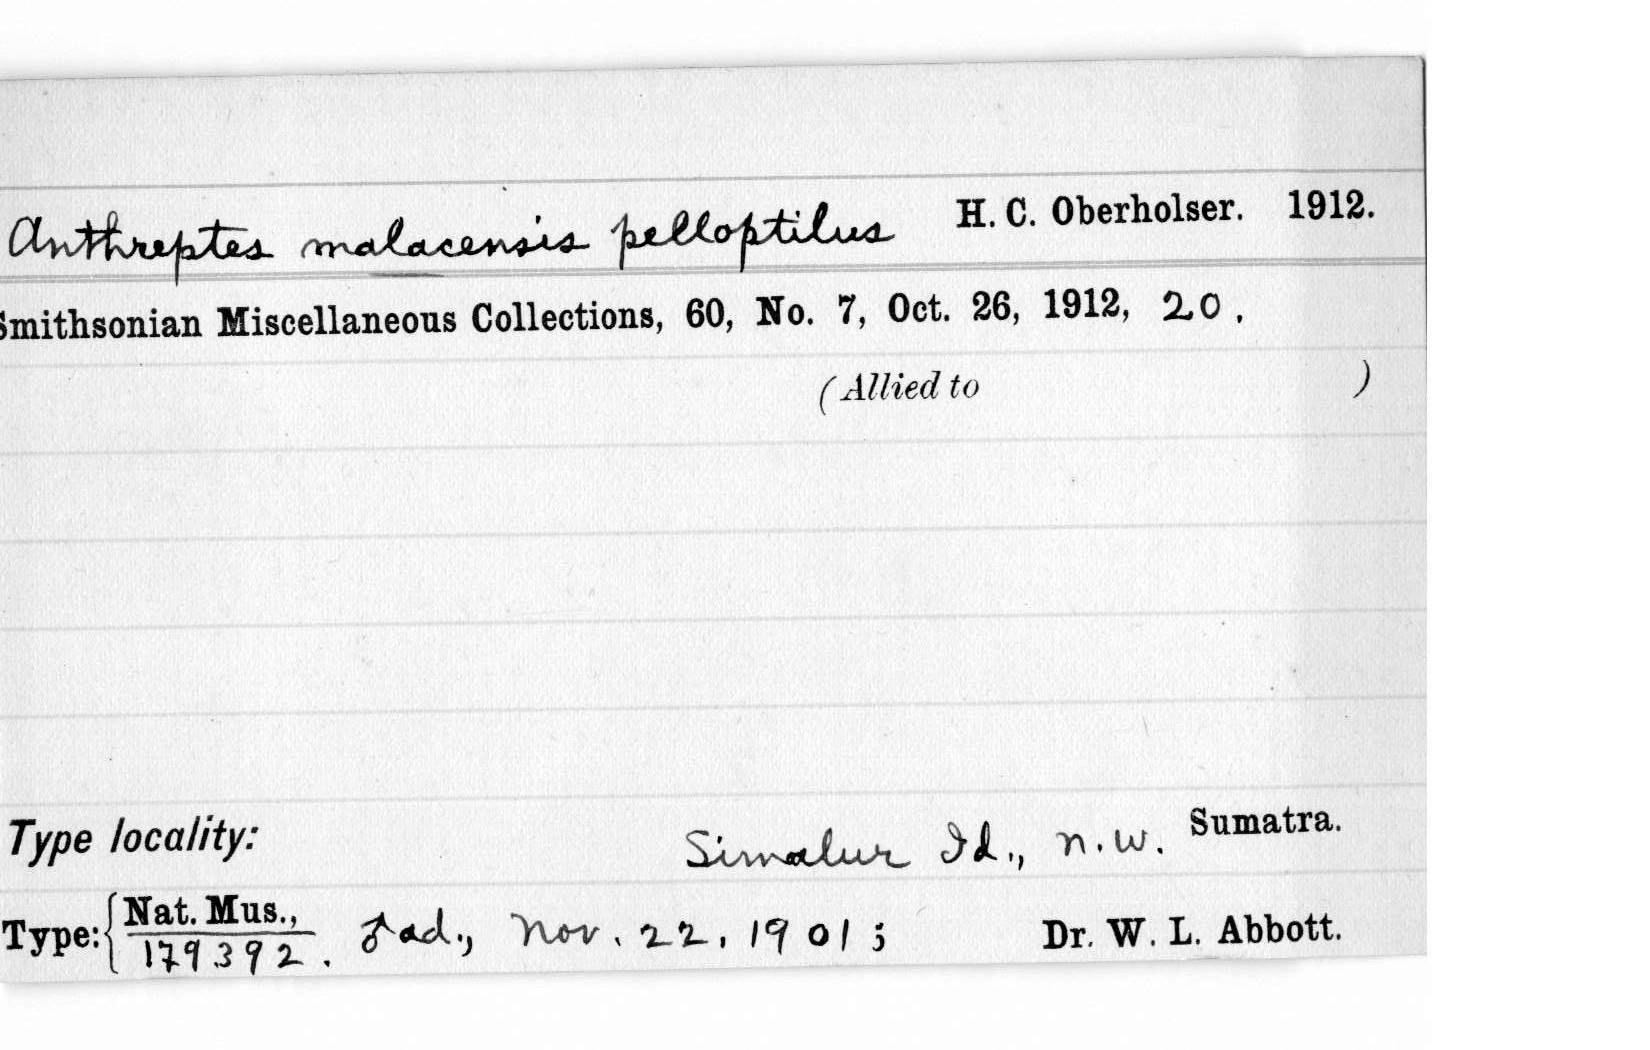 Anthreptes malacensis pelloptilus H. C. Oberholser. 1912.
Smithsonian Miscellaneous Collections, 60, No. 7, Oct. 26, 1912, 20.
(Allied to )
Type locality: Simalur Id., n.w. Sumatra.
Type: { Nat. Mus., 179392. ♂ ad., Nov. 22, 1901; Dr. W. L. Abbott.